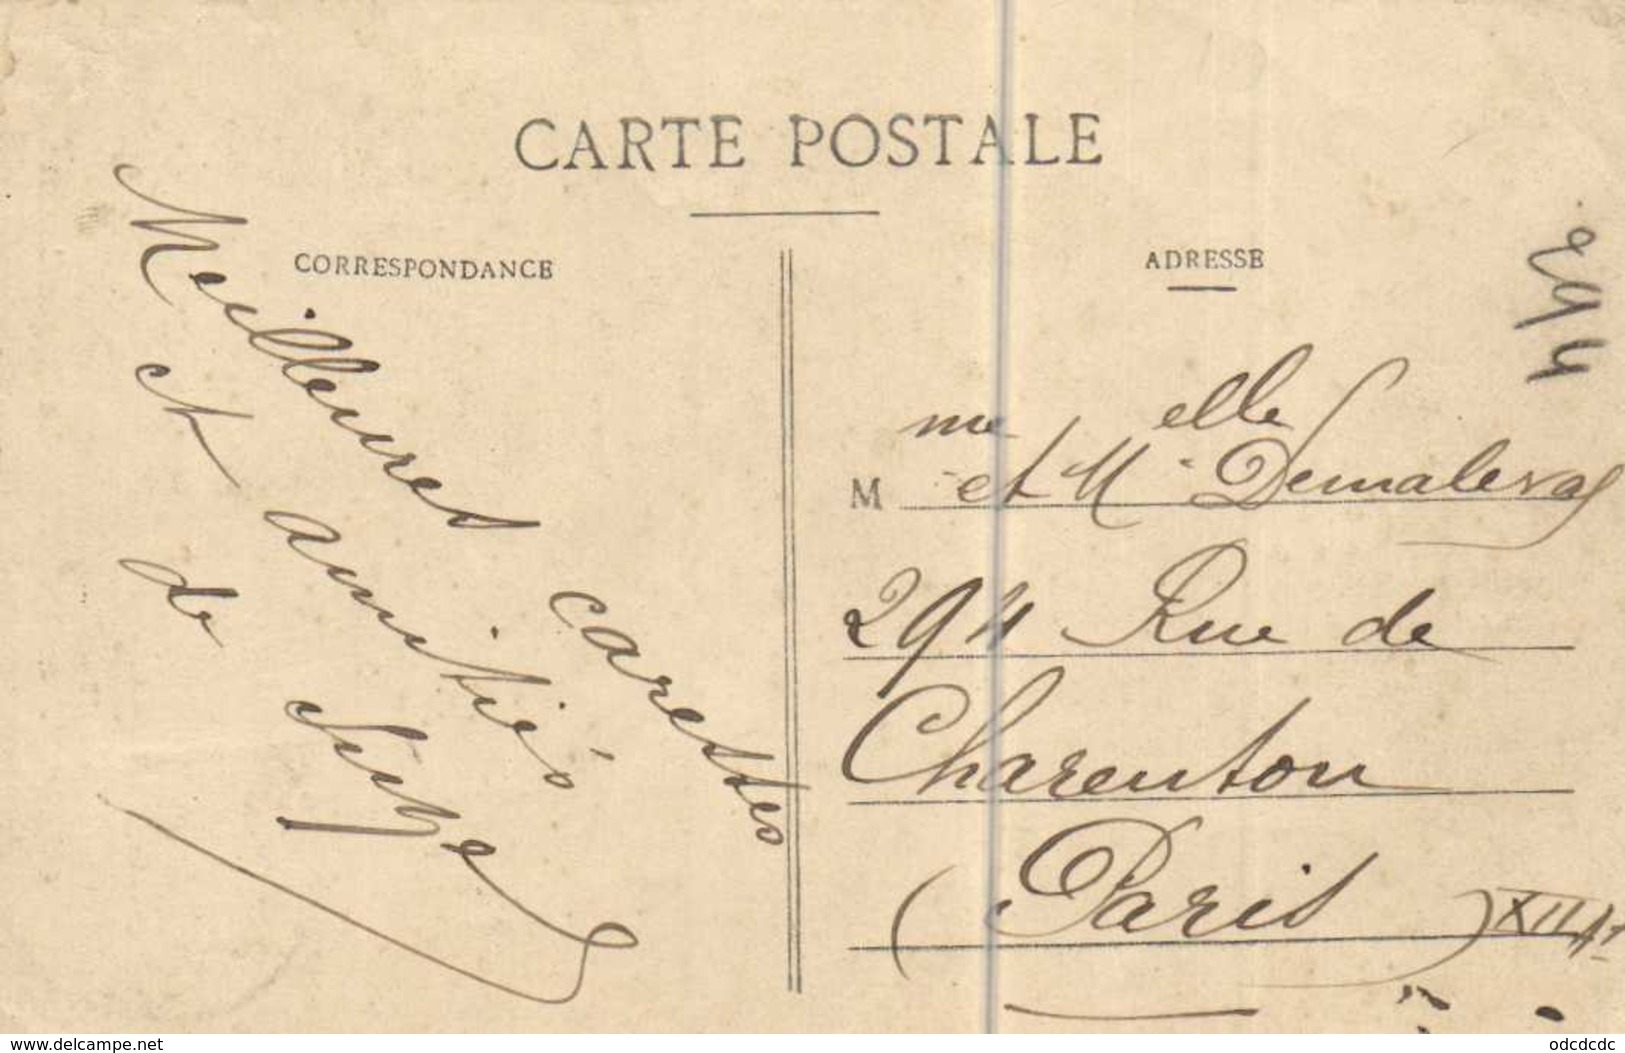 CARTE POSTALE
CORRESPONDANCE
Meilleures caresses
et amitiés
de Suze
ADRESSE
294
M me et Melle Demaleval
294 Rue de
Charenton
(Paris) XII Ar
www.delcampe.net
odcdcdc